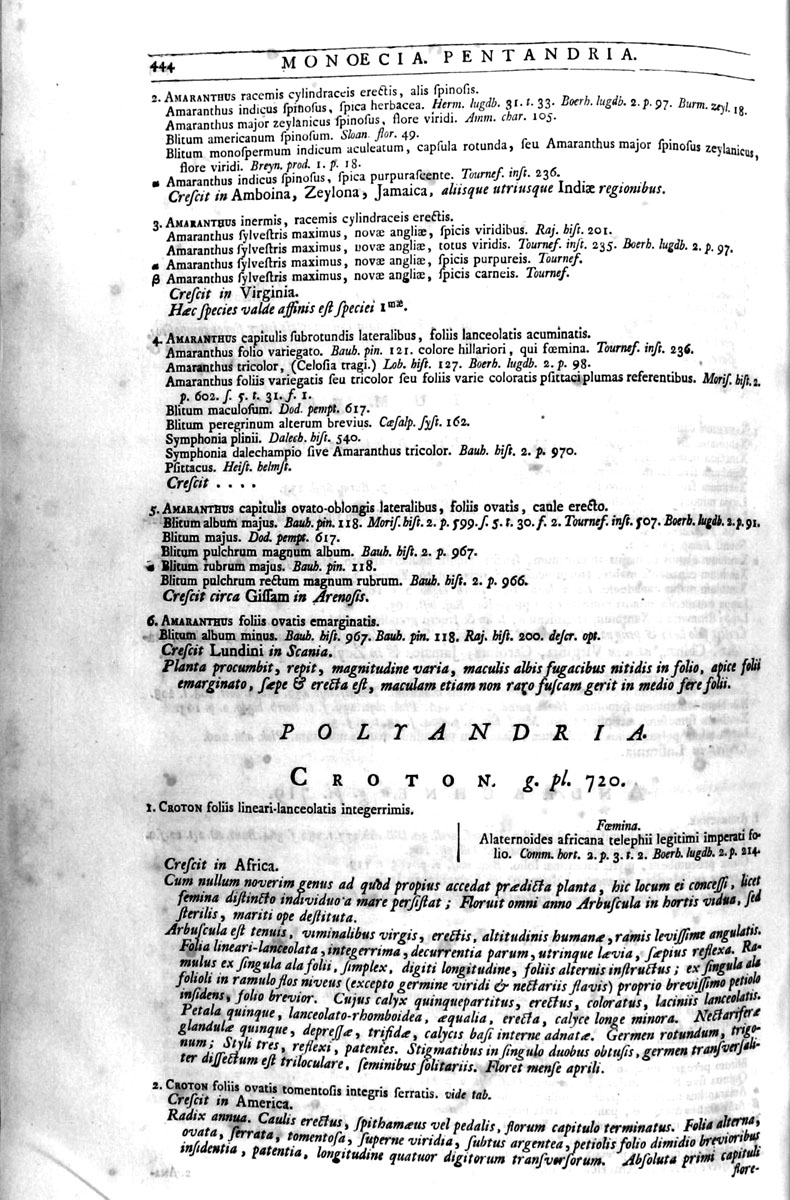 444 MONOECIA. PENTANDRIA.
2. AMARANTHUS racemis cylindraceis erectis, alis ſpinoſis.
Amaranthus indicus ſpinoſus, ſpica herbacea. Herm. lugdb. 31. t. 33. Boerh. lugdb. 2. p. 97. Burm. zeyl. 18.
Amaranthus major zeylanicus ſpinoſus, flore viridi. Amm. char. 105.
Blitum americanum ſpinoſum. Sloan. flor. 49.
Blitum monoſpermum indicum aculeatum, capſula rotunda, ſeu Amaranthus major ſpinoſus zeylanicus,
flore viridi. Breyn. prod. 1. p. 18.
Amaranthus indicus ſpinoſus, ſpica purpuraſcente. Tournef. inſt. 236.
Creſcit in Amboina, Zeylona, Jamaica, aliisque utriusque Indiæ regionibus.
3. AMARANTHUS inermis, racemis cylindraceis erectis.
Amaranthus ſylveſtris maximus, novæ angliæ, ſpicis viridibus. Raj. hiſt. 201.
Amaranthus ſylveſtris maximus, novæ angliæ, totus viridis. Tournef. inſt. 235. Boerh. lugdb. 2. p. 97.
α Amaranthus ſylveſtris maximus, novæ angliæ, ſpicis purpureis. Tournef.
β Amaranthus ſylveſtris maximus, novæ angliæ, ſpicis carneis. Tournef.
Creſcit in Virginia.
Hæc ſpecies valde affinis eſt ſpeciei 1mæ.
4. AMARANTHUS capitulis ſubrotundis lateralibus, foliis lanceolatis acuminatis.
Amaranthus folio variegato. Bauh. pin. 121. colore hillariori, qui fœmina. Tournef. inſt. 236.
Amaranthus tricolor, (Celoſia tragi.) Lob. hiſt. 127. Boerh. lugdb. 2. p. 98.
Amaranthus foliis variegatis ſeu tricolor ſeu foliis varie coloratis pſittaci plumas referentibus. Moriſ. hiſt. 2.
p. 602. ſ. 5. t. 31. f. 1.
Blitum maculoſum. Dod. pempt. 617.
Blitum peregrinum alterum brevius. Cæſalp. ſyſt. 162.
Symphonia plinii. Dalech. hiſt. 540.
Symphonia dalechampio ſive Amaranthus tricolor. Bauh. hiſt. 2. p. 970.
Pſittacus. Heiſt. helmſt.
Creſcit . . . .
5. AMARANTHUS capitulis ovato-oblongis lateralibus, foliis ovatis, caule erecto.
Blitum album majus. Bauh. pin. 118. Moriſ. hiſt. 2. p. 599. ſ. 5. t. 30. f. 2. Tournef. inſt. 507. Boerh. lugdb. 2. p. 91.
Blitum majus. Dod. pempt. 617.
Blitum pulchrum magnum album. Bauh. hiſt. 2. p. 967.
α Blitum rubrum majus. Bauh. pin. 118.
Blitum pulchrum rectum magnum rubrum. Bauh. hiſt. 2. p. 966.
Creſcit circa Giſſam in Arenoſis.
6. AMARANTHUS foliis ovatis emarginatis.
Blitum album minus. Bauh. hiſt. 967. Bauh. pin. 118. Raj. hiſt. 200. deſcr. opt.
Creſcit Lundini in Scania.
Planta procumbit, repit, magnitudine varia, maculis albis fugacibus nitidis in folio, apice folii
emarginato, ſæpe & erecta eſt, maculam etiam non raro fuſcam gerit in medio fere folii.
POLYANDRIA.
CROTON. g. pl. 720.
1. CROTON foliis lineari-lanceolatis integerrimis.
Fœmina.
Alaternoides africana telephii legitimi imperati fo-
lio. Comm. hort. 2. p. 3. t. 2. Boerh. lugdb. 2. p. 214.
Creſcit in Africa.
Cum nullum noverim genus ad quod propius accedat prædicta planta, hic locum ei conceſſi, licet
femina diſtincto individuo a mare perſiſtat; Floruit omni anno Arbuſcula in hortis vidua, ſed
ſterilis, mariti ope deſtituta.
Arbuſcula eſt tenuis, viminalibus virgis, erectis, altitudinis humanæ, ramis leviſſime angulatis.
Folia lineari-lanceolata, integerrima, decurrentia parum, utrinque lævia, ſæpius reflexa. Ra-
mulus ex ſingula ala folii, ſimplex, digiti longitudine, foliis alternis inſtructus; ex ſingula ala
folioli in ramulo flos niveus (excepto germine viridi & nectariis flavis) proprio breviſſimo petiolo
inſidens, folio brevior. Cujus calyx quinquepartitus, erectus, coloratus, laciniis lanceolatis.
Petala quinque, lanceolato-rhomboidea, æqualia, erecta, calyce longe minora. Nectariferæ
glandulæ quinque, depreſſæ, trifidæ, calycis baſi interne adnatæ. Germen rotundum, trigo-
num; Styli tres, reflexi, patentes. Stigmatibus in ſingulo duobus obtuſis, germen tranſverſali-
ter diſſectum eſt triloculare, ſeminibus ſolitariis. Floret menſe aprili.
2. CROTON foliis ovatis tomentoſis integris ſerratis. vide tab.
Creſcit in America.
Radix annua. Caulis erectus, ſpithamæus vel pedalis, florum capitulo terminatus. Folia alterna,
ovata, ſerrata, tomentoſa, ſuperne viridia, ſubtus argentea, petiolis folio dimidio brevioribus
inſidentia, patentia, longitudine quatuor digitorum tranſverſorum. Abſoluta primi capituli
flore-